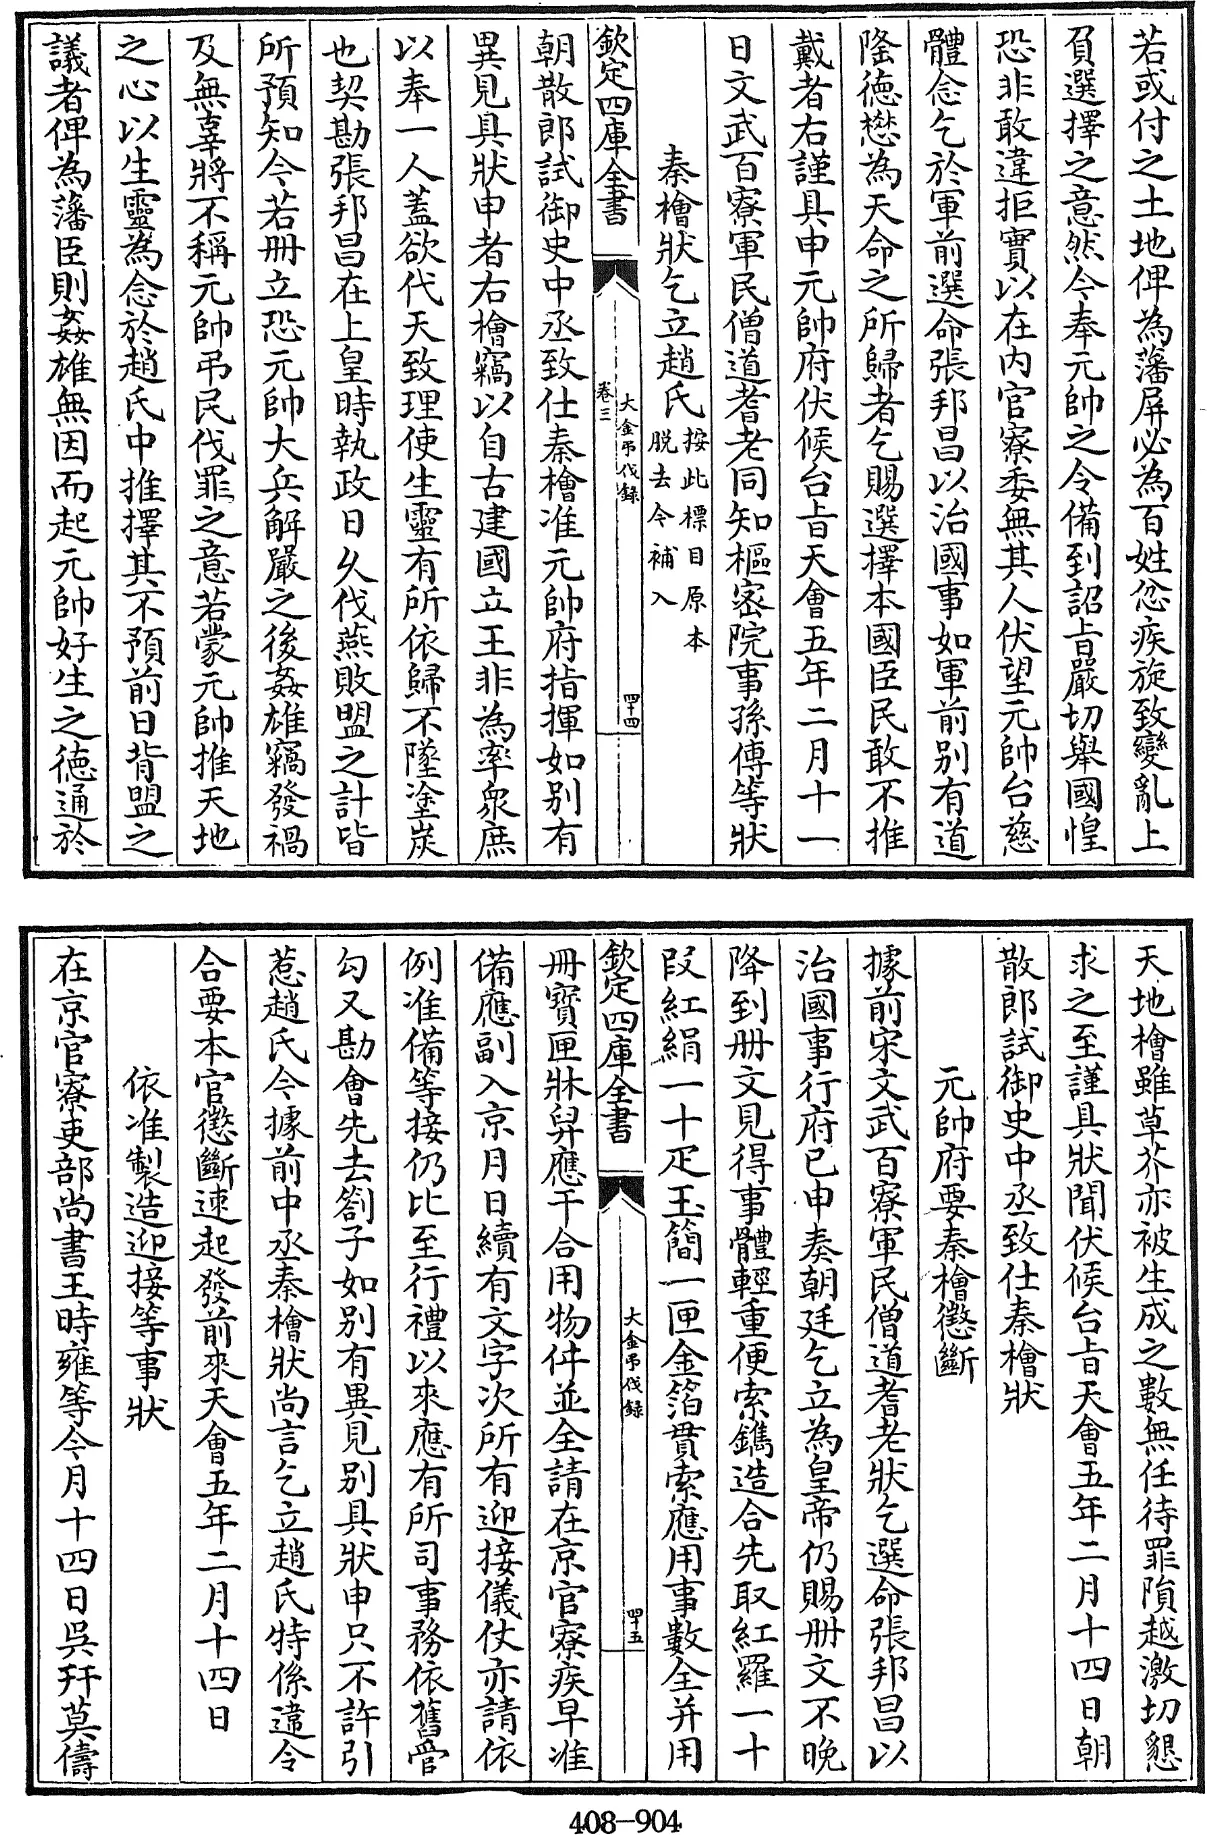 若或付之土地俾為藩屏必為百姓忿疾旋致變亂上
負選擇之意然今奉元帥之令備到詔旨嚴切舉國惶
恐非敢違拒實以在内官寮委無其人伏望元帥台慈
體念乞於軍前選命張邦昌以治國事如軍前别有道
隆德懋為天命之所歸者乞賜選擇本國臣民敢不推
戴者右謹具申元帥府伏候台旨天會五年二月十一
日文武百寮軍民僧道耆老同知樞密院事孫傅等狀
秦檜狀乞立趙氏按此標目原本
脱去今補入
欽定四庫全書
大金弔伐録
卷三
四十四
朝散郎試御史中丞致仕秦檜准元帥府指揮如别有
異見具狀申者右檜竊以自古建國立王非為率衆庶
以奉一人蓋欲代天致理使生靈有所依歸不墜塗炭
也契勘張邦昌在上皇時執政日久伐燕敗盟之計皆
所預知今若冊立恐元帥大兵解嚴之後姦雄竊發禍
及無辜將不稱元帥弔民伐罪之意若蒙元帥推天地
之心以生靈為念於趙氏中推擇其不預前日背盟之
議者俾為藩臣則姦雄無因而起元帥好生之德通於
天地檜雖草芥亦被生成之數無任待罪隕越激切懇
求之至謹具狀聞伏候台旨天會五年二月十四日朝
散郎試御史中丞致仕秦檜狀
元帥府要秦檜懲斷
據前宋文武百寮軍民僧道耆老狀乞選命張邦昌以
治國事行府已申奏朝廷乞立為皇帝仍賜冊文不晚
降到冊文見得事體輕重便索鐫造合先取紅羅一十
段紅絹一十疋玉簡一匣金箔貫索應用事數全并用
欽定四庫全書
大金弔伐録
四十五
冊寶匣牀舁應干合用物件並全請在京官寮疾早准
備應副入京月日續有文字次所有迎接儀仗亦請依
例准備等接仍比至行禮以來應有所司事務依舊管
勾又勘會先去劄子如别有異見别具狀申只不許引
惹趙氏今據前中丞秦檜狀尚言乞立趙氏特係違令
合要本官懲斷速起發前來天會五年二月十四日
依准製造迎接等事狀
在京官寮吏部尚書王時雍等今月十四日吳幵莫儔
408-904